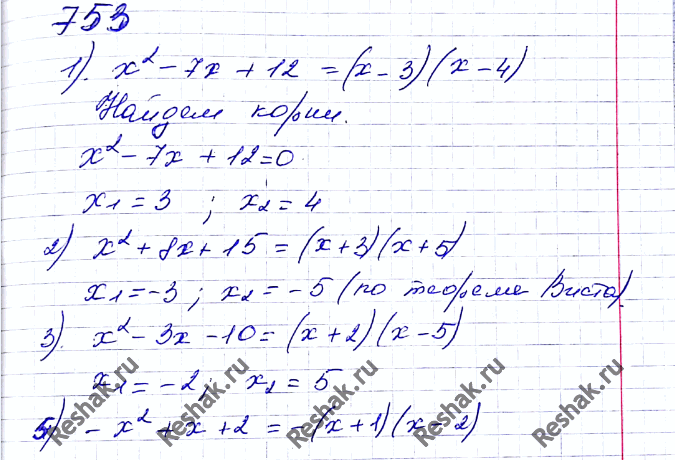 753
1). x² - 7x + 12 = (x - 3)(x - 4)
Найдем корни.
x² - 7x + 12 = 0
x₁ = 3 ; x₂ = 4
2) x² + 8x + 15 = (x + 3)(x + 5)
x₁ = -3 ; x₂ = -5 (по теореме Виета).
3). x² - 3x - 10 = (x + 2)(x - 5)
x₁ = -2 ; x₂ = 5
5) -x² + x + 2 = -(x + 1)(x - 2)
Reshak.ru Reshak.ru Reshak.ru Reshak.ru Reshak.ru